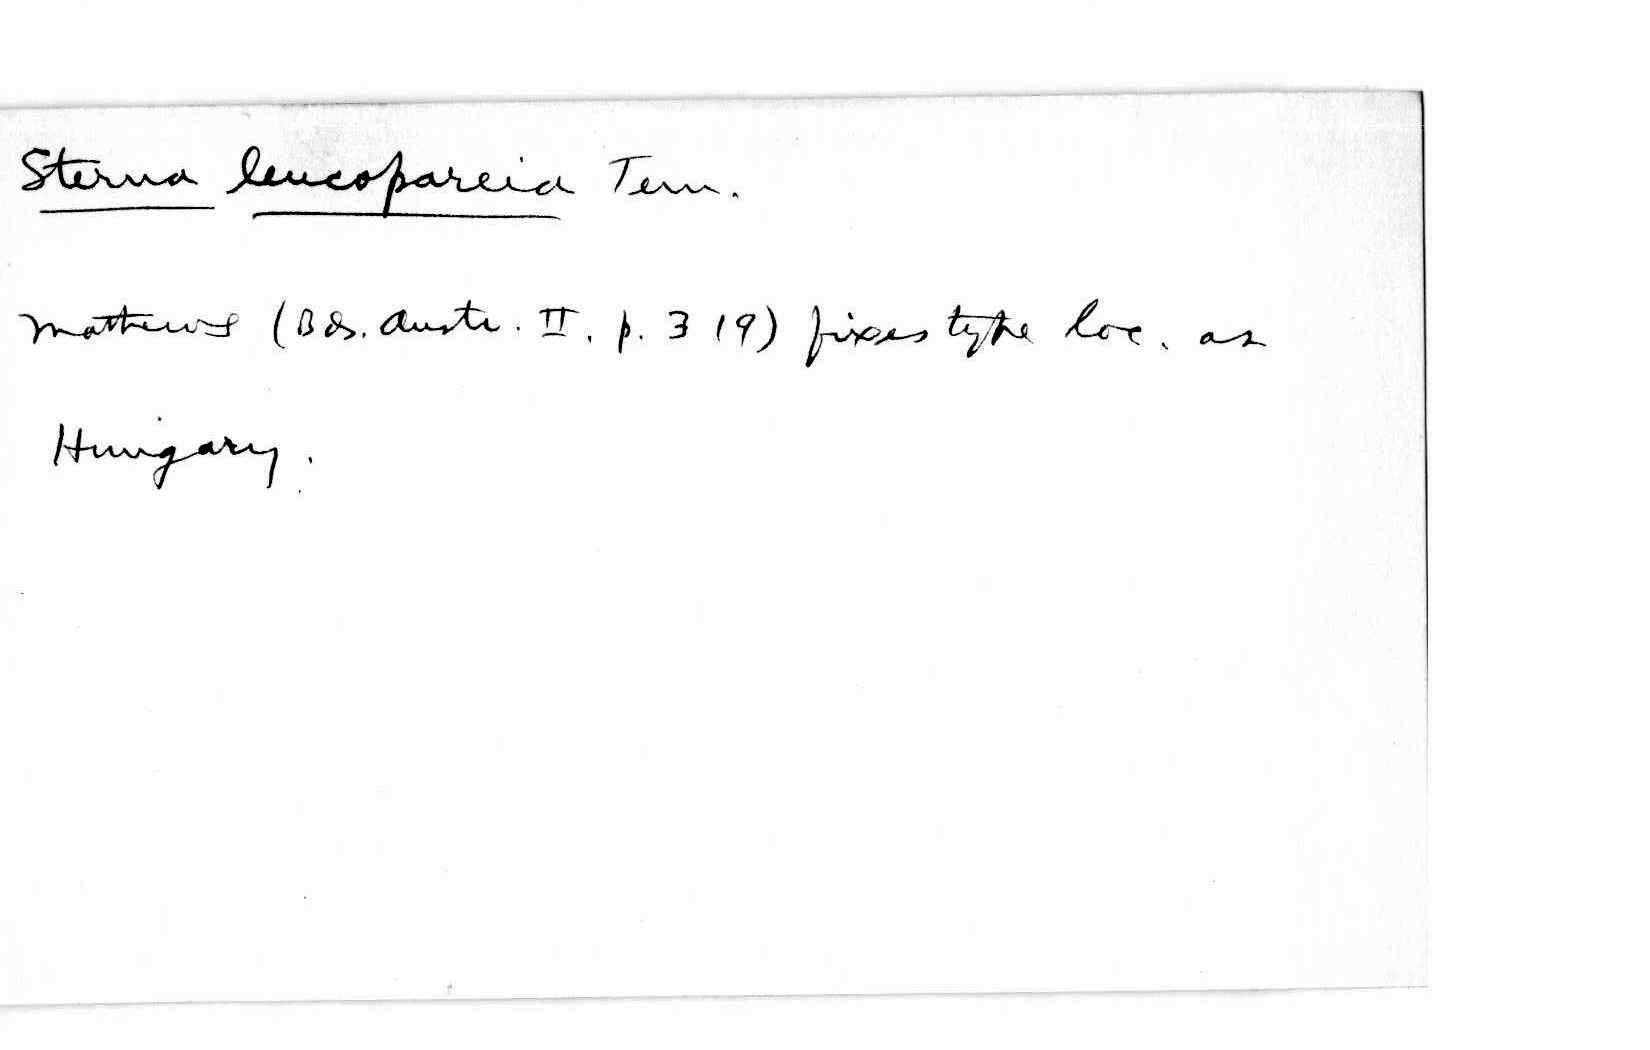 Sterna leucopareia Tem.
Mathews (Bds. Austr. II. p. 319) fixes type loc. as
Hungary.